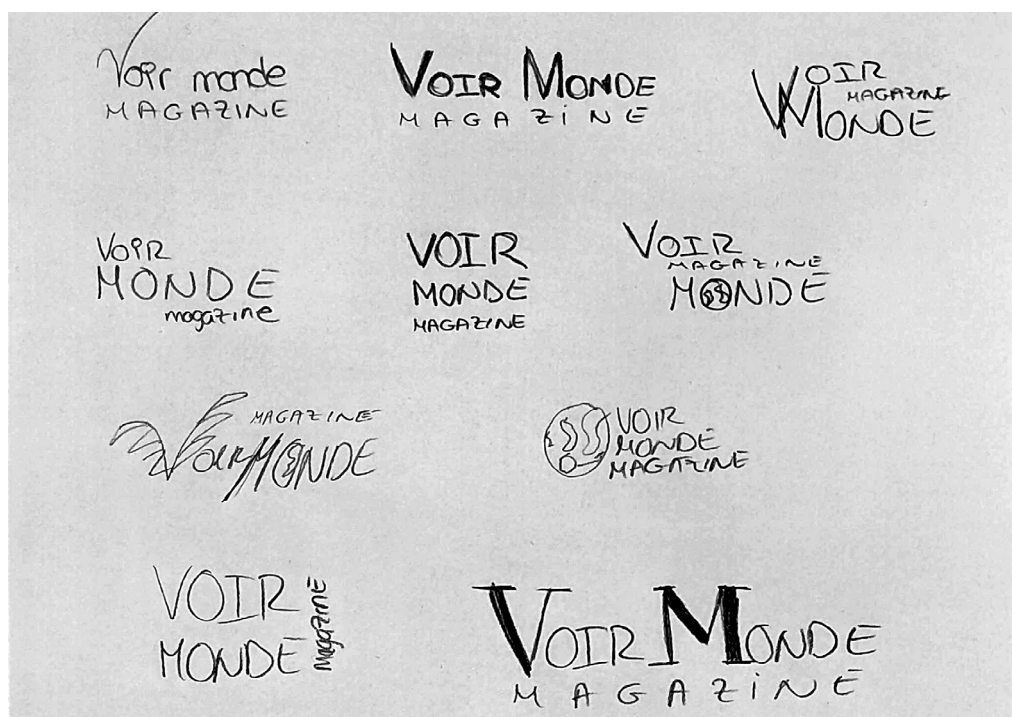 Voir monde
MAGAZINE
VOIR MONDE
MAGAZiNE
VOIR
MAGAZINE
MONDE
VOIR
MONDE
magazine
VOIR
MONDE
MAGAZINE
VOIR
MAGAZINE
MONDE
MAGAZINE
Voir MONDE
VOIR
MONDE
MAGAZINE
VOIR
MONDE
Magazine
VOIR MONDE
MAGAZiNE